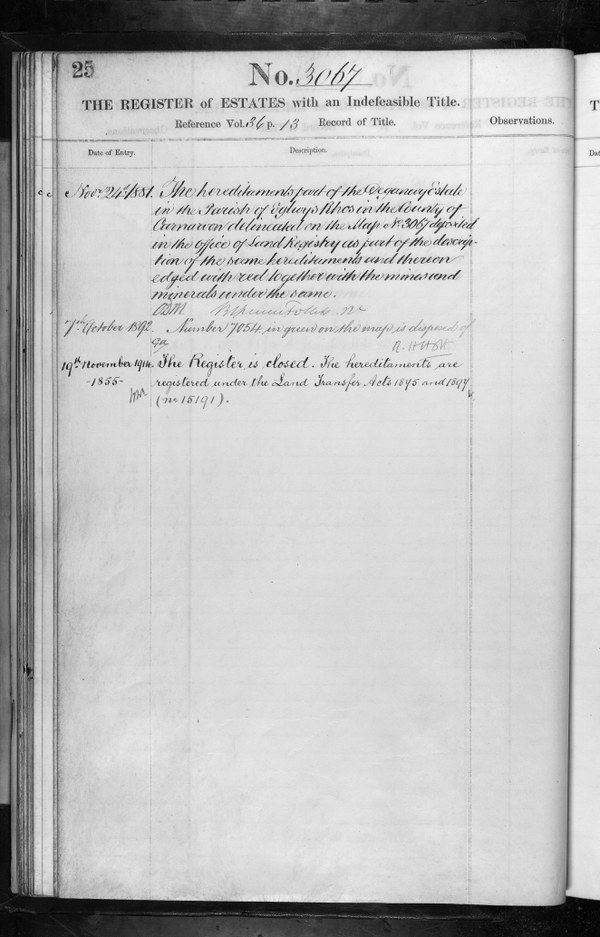 25
No. 3067
THE REGISTER of ESTATES with an Indefeasible Title.
Reference Vol. 36 p. 13 Record of Title.
Observations.
Date of Entry.
Description.
Novr. 24th 1881. The hereditaments part of the Deganwy Estate
in the Parish of Eglwys Rhos in the County of
Carnarvon delineated on the Map No. 3067 deposited
in the office of Land Registry as part of the descrip-
tion of the same hereditaments and thereon
edged with red together with the mines and
minerals under the same.
7th October 1892. Number 7054 in green on the map is disposed of
19th November 1914. The Register is closed. The hereditaments are
-1855- registered under the Land Transfer Acts 1875 and 1897
(no 15191).